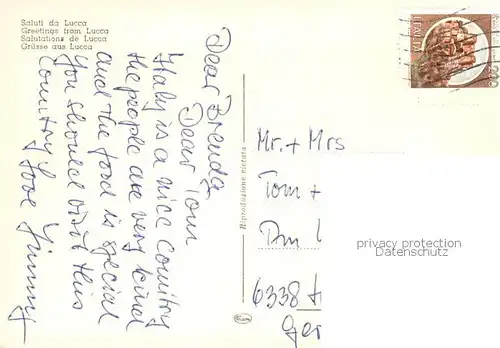 Saluti da Lucca
Greetings from Lucca
Salutations de Lucca
Grüsse aus Lucca
Dear Brenda
Dear Tom
Italy is a nice Country
the people are very kind
and the food is special
You should visit this
Country Love Jimmy
Riproduzione vietata
ITALIA
Mr. + Mrs
Tom +
Am
6338
Ger
privacy protection
Datenschutz